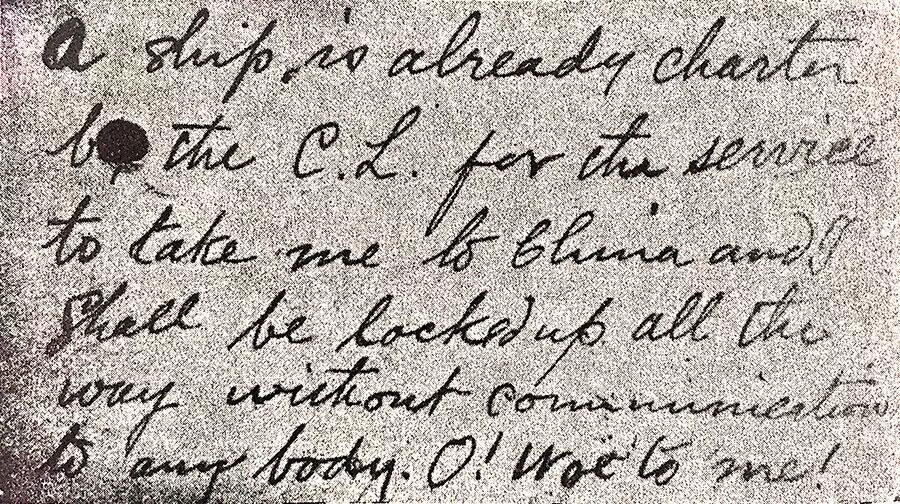 A ship is already charter
by the C.L. for the service
to take me to China and I
shall be locked up all the
way without communication
to any body. O! Woe to me!